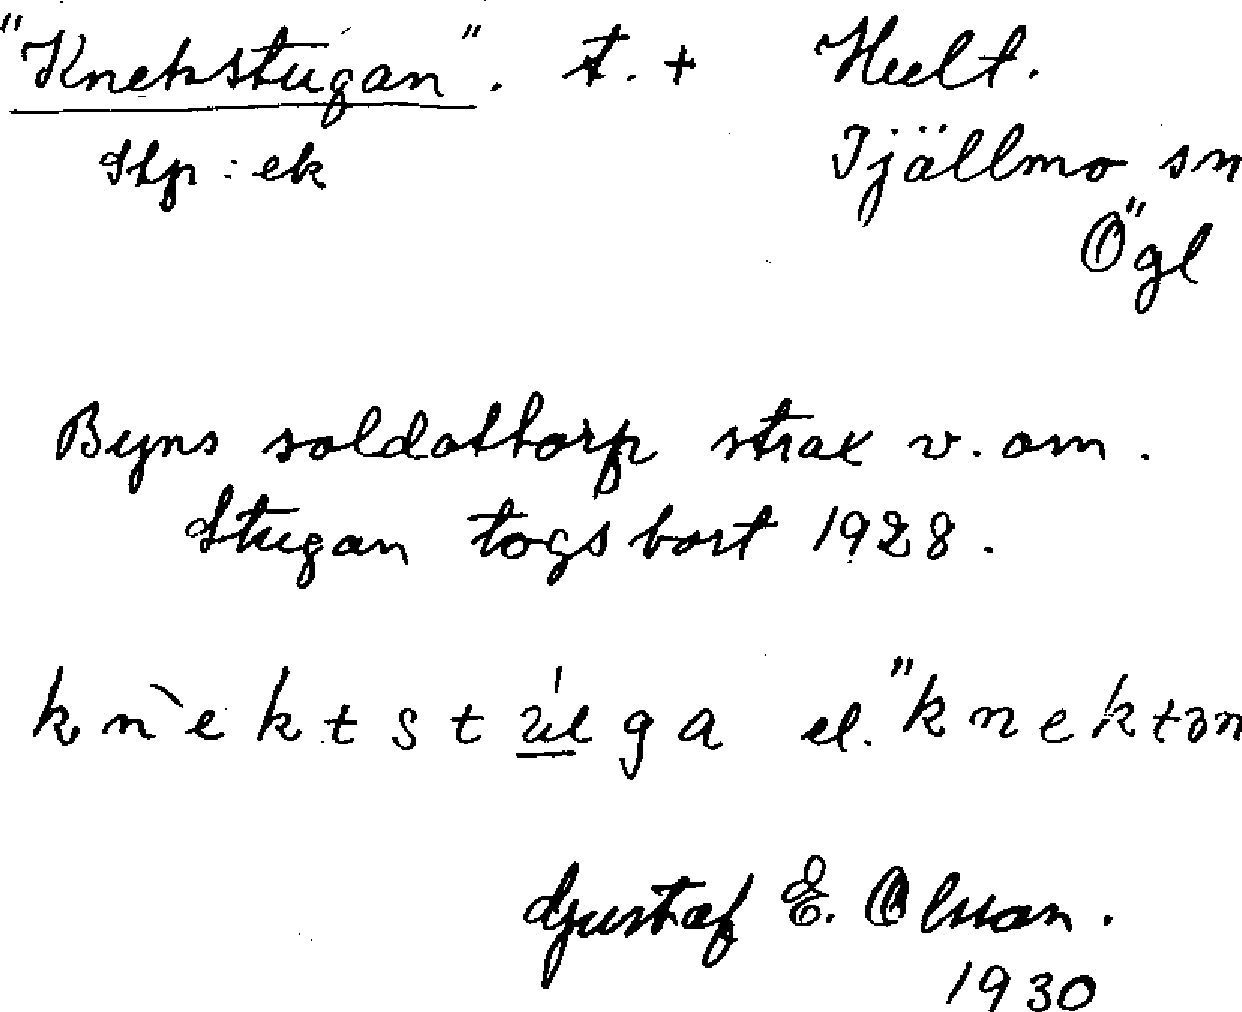 "Knekstugan". t. + Hult.
Stp: ek Tjällmo sn
Ögl
Byns soldattorp strax v. om.
Stugan togs bort 1928.
kn`ektstúga el. "knektən
Gustaf E. Olsson.
1930